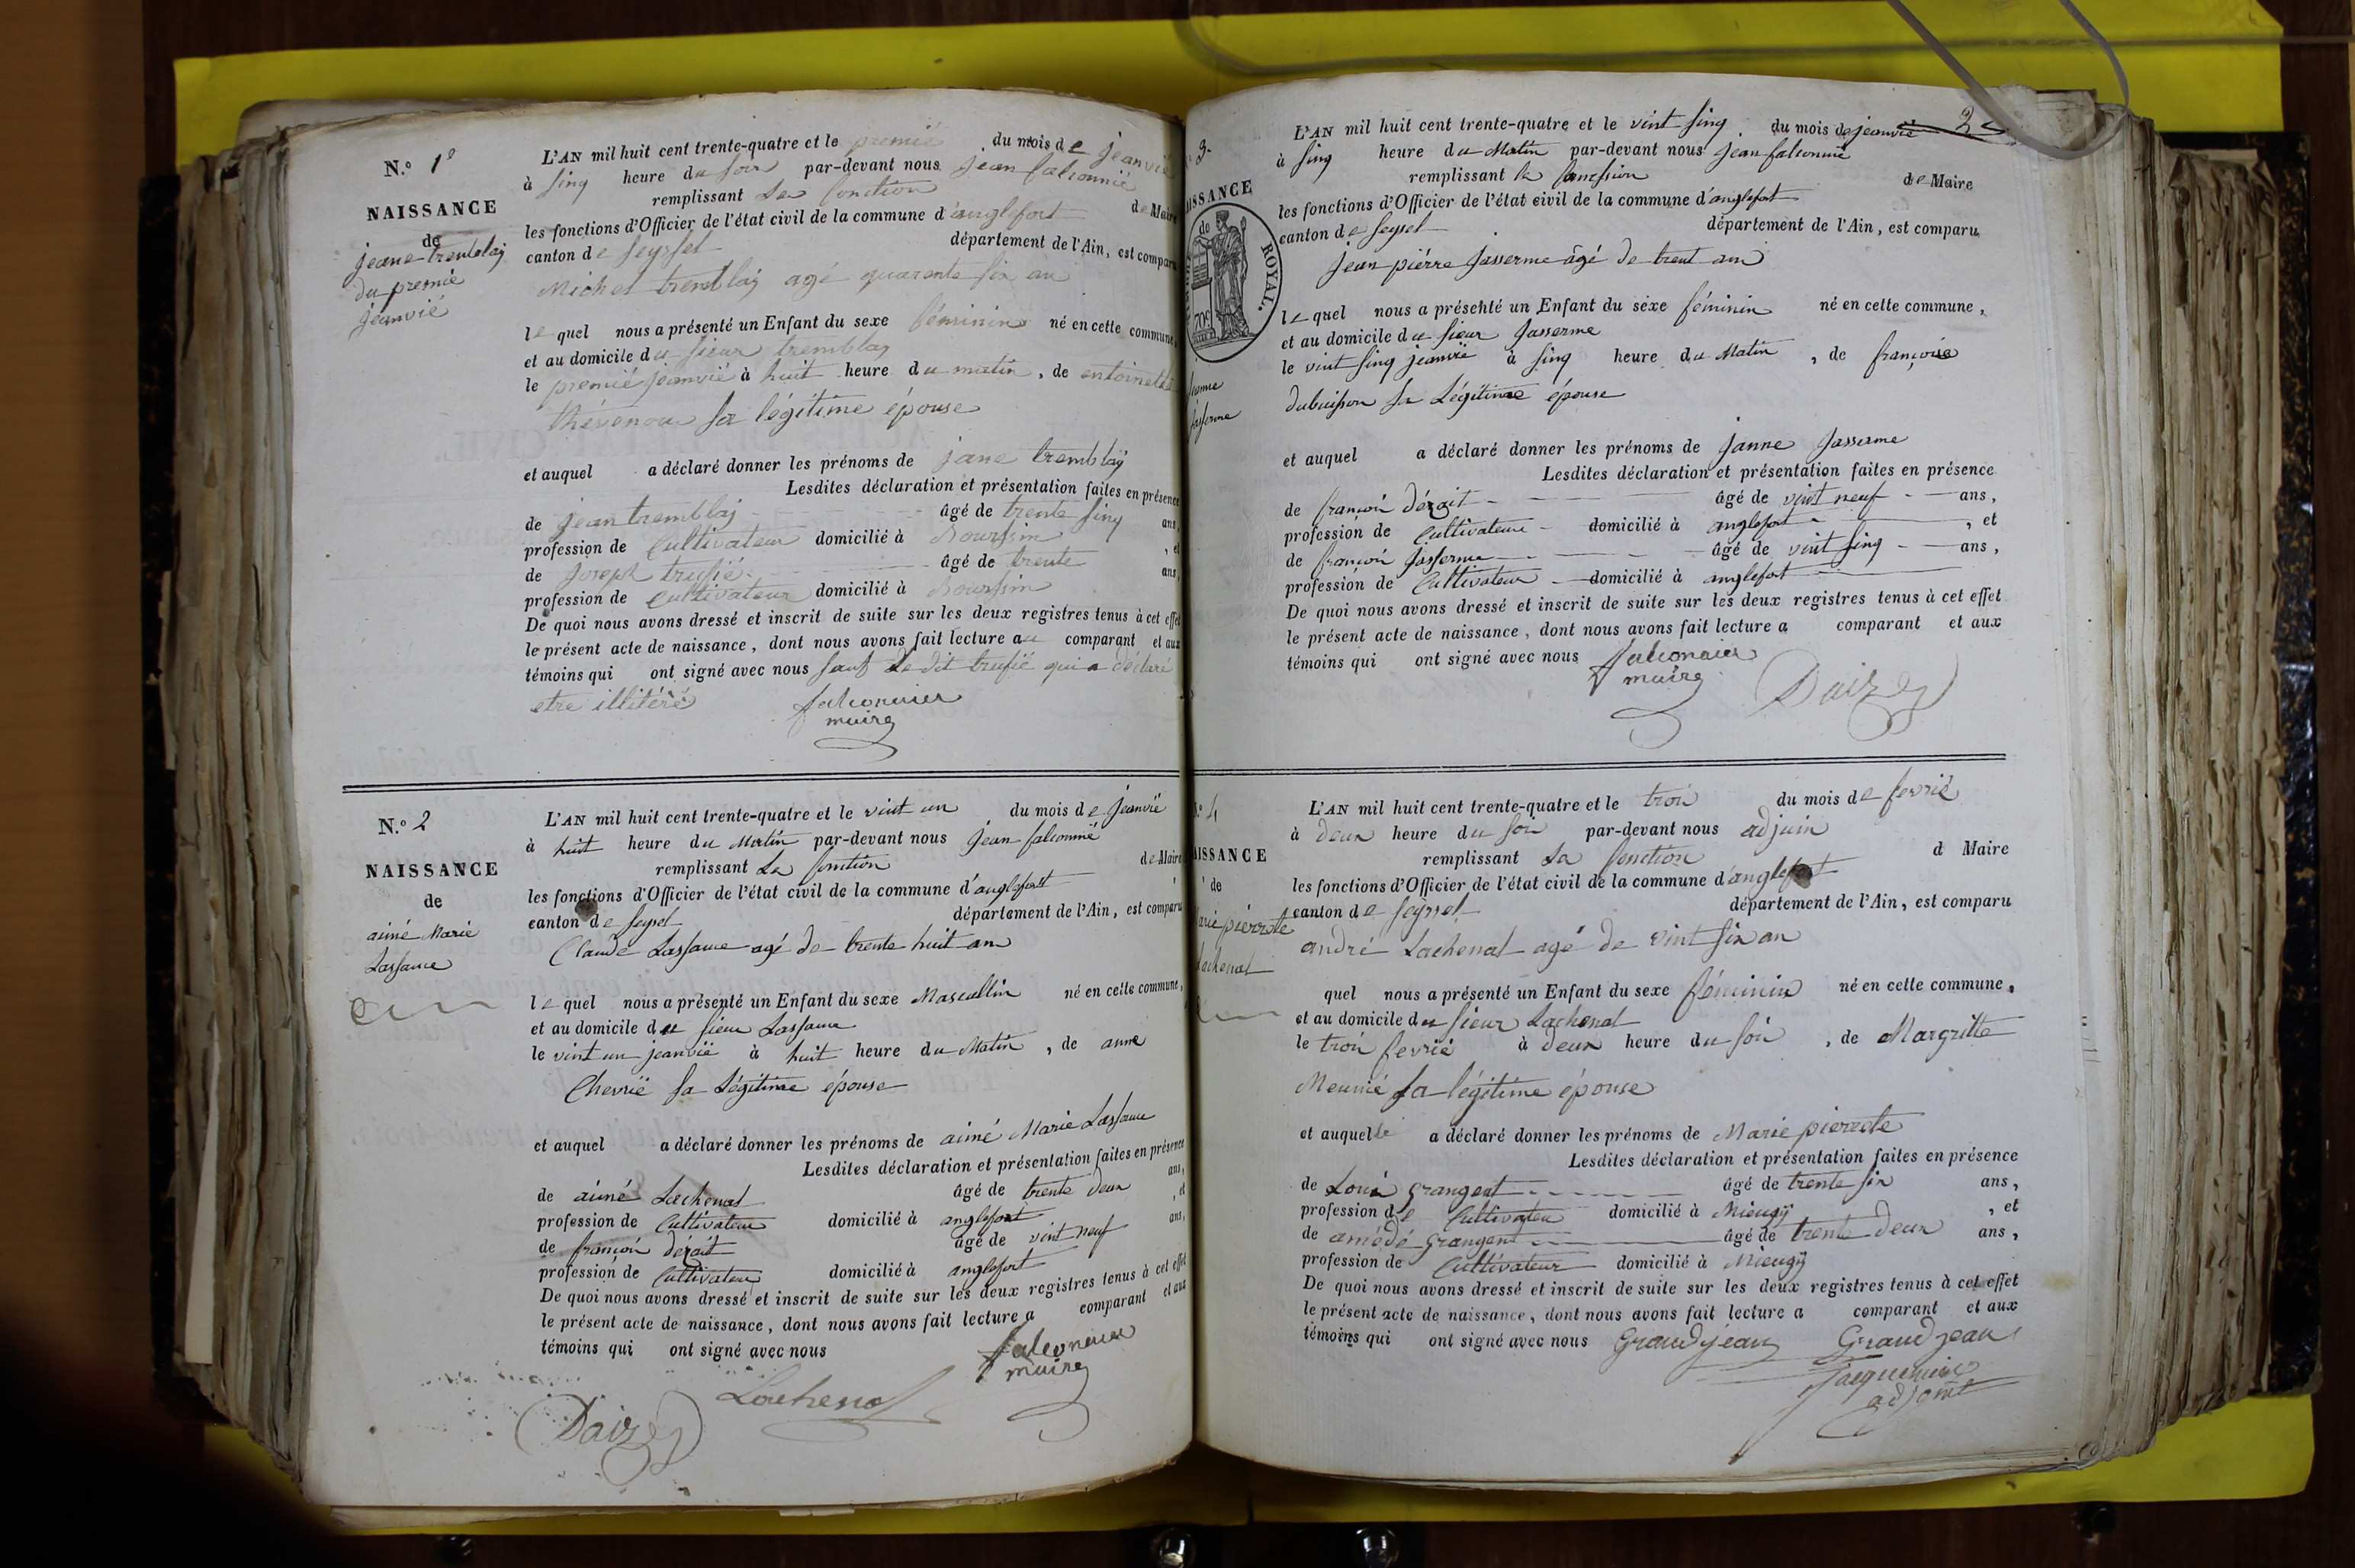 N.º 1º
NAISSANCE
de
jeane tremblaij
du premié
jeanvié
L'AN mil huit cent trente-quatre et le premié du mois de jeanvié
à sinq heure du soir par-devant nous jean falconnié
remplissant la fonction de Maire
les fonctions d'Officier de l'état civil de la commune d'anglefort
canton de seyssel département de l'Ain, est comparu
Michel tremblaij agé quarente six an
lequel nous a présenté un Enfant du sexe féminin né en cette commune,
et au domicile du sieur tremblaij
le premié jeanvié à huit heure du matin, de entoinette
thévenou sa légitime épouse
et auquel a déclaré donner les prénoms de jane tremblaÿ
Lesdites déclaration et présentation faites en présence
de jean tremblaij âgé de trente sinq ans,
profession de Cultivateur domicilié à Boursin, et
de joseph trufié âgé de trente ans,
profession de Cultivateur domicilié à Boursin
De quoi nous avons dressé et inscrit de suite sur les deux registres tenus à cet effet
le présent acte de naissance, dont nous avons fait lecture au comparant et aux
témoins qui ont signé avec nous sauf Le dit trufié qui a déclaré
etre illitéré falconnier
maire
N.º 2
NAISSANCE
de
aimé Marie
Lassauce
L'AN mil huit cent trente-quatre et le vint un du mois de Jeanvié
à huit heure du Matin par-devant nous jean falconnié
remplissant La fonction de Maire
les fonctions d'Officier de l'état civil de la commune d'anglefort
canton de seysel département de l'Ain, est comparu
Claude Lassauce agé de trente huit an
lequel nous a présenté un Enfant du sexe Mascullin né en cette commune,
et au domicile du sieur Lassauce
le vint un jeanvié à huit heure du Matin, de anne
Chevrié sa Légitime épouse
et auquel a déclaré donner les prénoms de aimé Marie Lassauce
Lesdites déclaration et présentation faites en présence
de aimé Lachenal âgé de trente deux ans,
profession de Cultivateur domicilié à anglefort, et
de françoi dérait âgé de vint neuf ans,
profession de Cultivateur domicilié à anglefort
De quoi nous avons dressé et inscrit de suite sur les deux registres tenus à cet effet
le présent acte de naissance, dont nous avons fait lecture a comparant et aux
témoins qui ont signé avec nous falconnier
maire
Lachenal
Daizey
2
3.
NAISSANCE
de
ROYAL.
70c
Janne
Jasserme
L'AN mil huit cent trente-quatre et le vint sinq du mois de jeanvié
à sinq heure du Matin par-devant nous Jean falconnié
remplissant la fonction de Maire
les fonctions d'Officier de l'état civil de la commune d'anglefort
canton de seysel département de l'Ain, est comparu
Jean piérre Jasserme âgé de trent an
lequel nous a présenté un Enfant du sexe féminin né en cette commune,
et au domicile du sieur Jasserme
le vint sinq jeanvié à sinq heure du Matin, de françoise
dubuisson sa Légitime épouse
et auquel a déclaré donner les prénoms de Janne Jasserme
Lesdites déclaration et présentation faites en présence
de françoi dérait âgé de vint neuf ans,
profession de Cultivateur domicilié à anglefort, et
de françoi Jasserme âgé de vint sinq ans,
profession de Cultivateur domicilié à anglefort
De quoi nous avons dressé et inscrit de suite sur les deux registres tenus à cet effet
le présent acte de naissance, dont nous avons fait lecture a comparant et aux
témoins qui ont signé avec nous falconnier
maire Daizey
Nº 4
NAISSANCE
de
Marie pierrete
Lachenal
L'AN mil huit cent trente-quatre et le troi du mois de fevrié
à deux heure du soir par-devant nous adjuin
remplissant La fonction d Maire
les fonctions d'Officier de l'état civil de la commune d'anglefort
canton de seyssel département de l'Ain, est comparu
andré Lachenal agé de vint six an
quel nous a présenté un Enfant du sexe féminin né en cette commune,
et au domicile du sieur Lachenal
le troi fevrié à deux heure du soir, de Margritte
Meunié sa légitime épouse
et auquelle a déclaré donner les prénoms de Marie pierrete
Lesdites déclaration et présentation faites en présence
de Loui grangent âgé de trente six ans,
profession de Cultivateur domicilié à Mieugÿ, et
de amédé grangent âgé de trente deux ans,
profession de Cultivateur domicilié à Mieugÿ
De quoi nous avons dressé et inscrit de suite sur les deux registres tenus à cet effet
le présent acte de naissance, dont nous avons fait lecture a comparant et aux
témoins qui ont signé avec nous Grandjean Grandjean
Jacquemier
adjoint